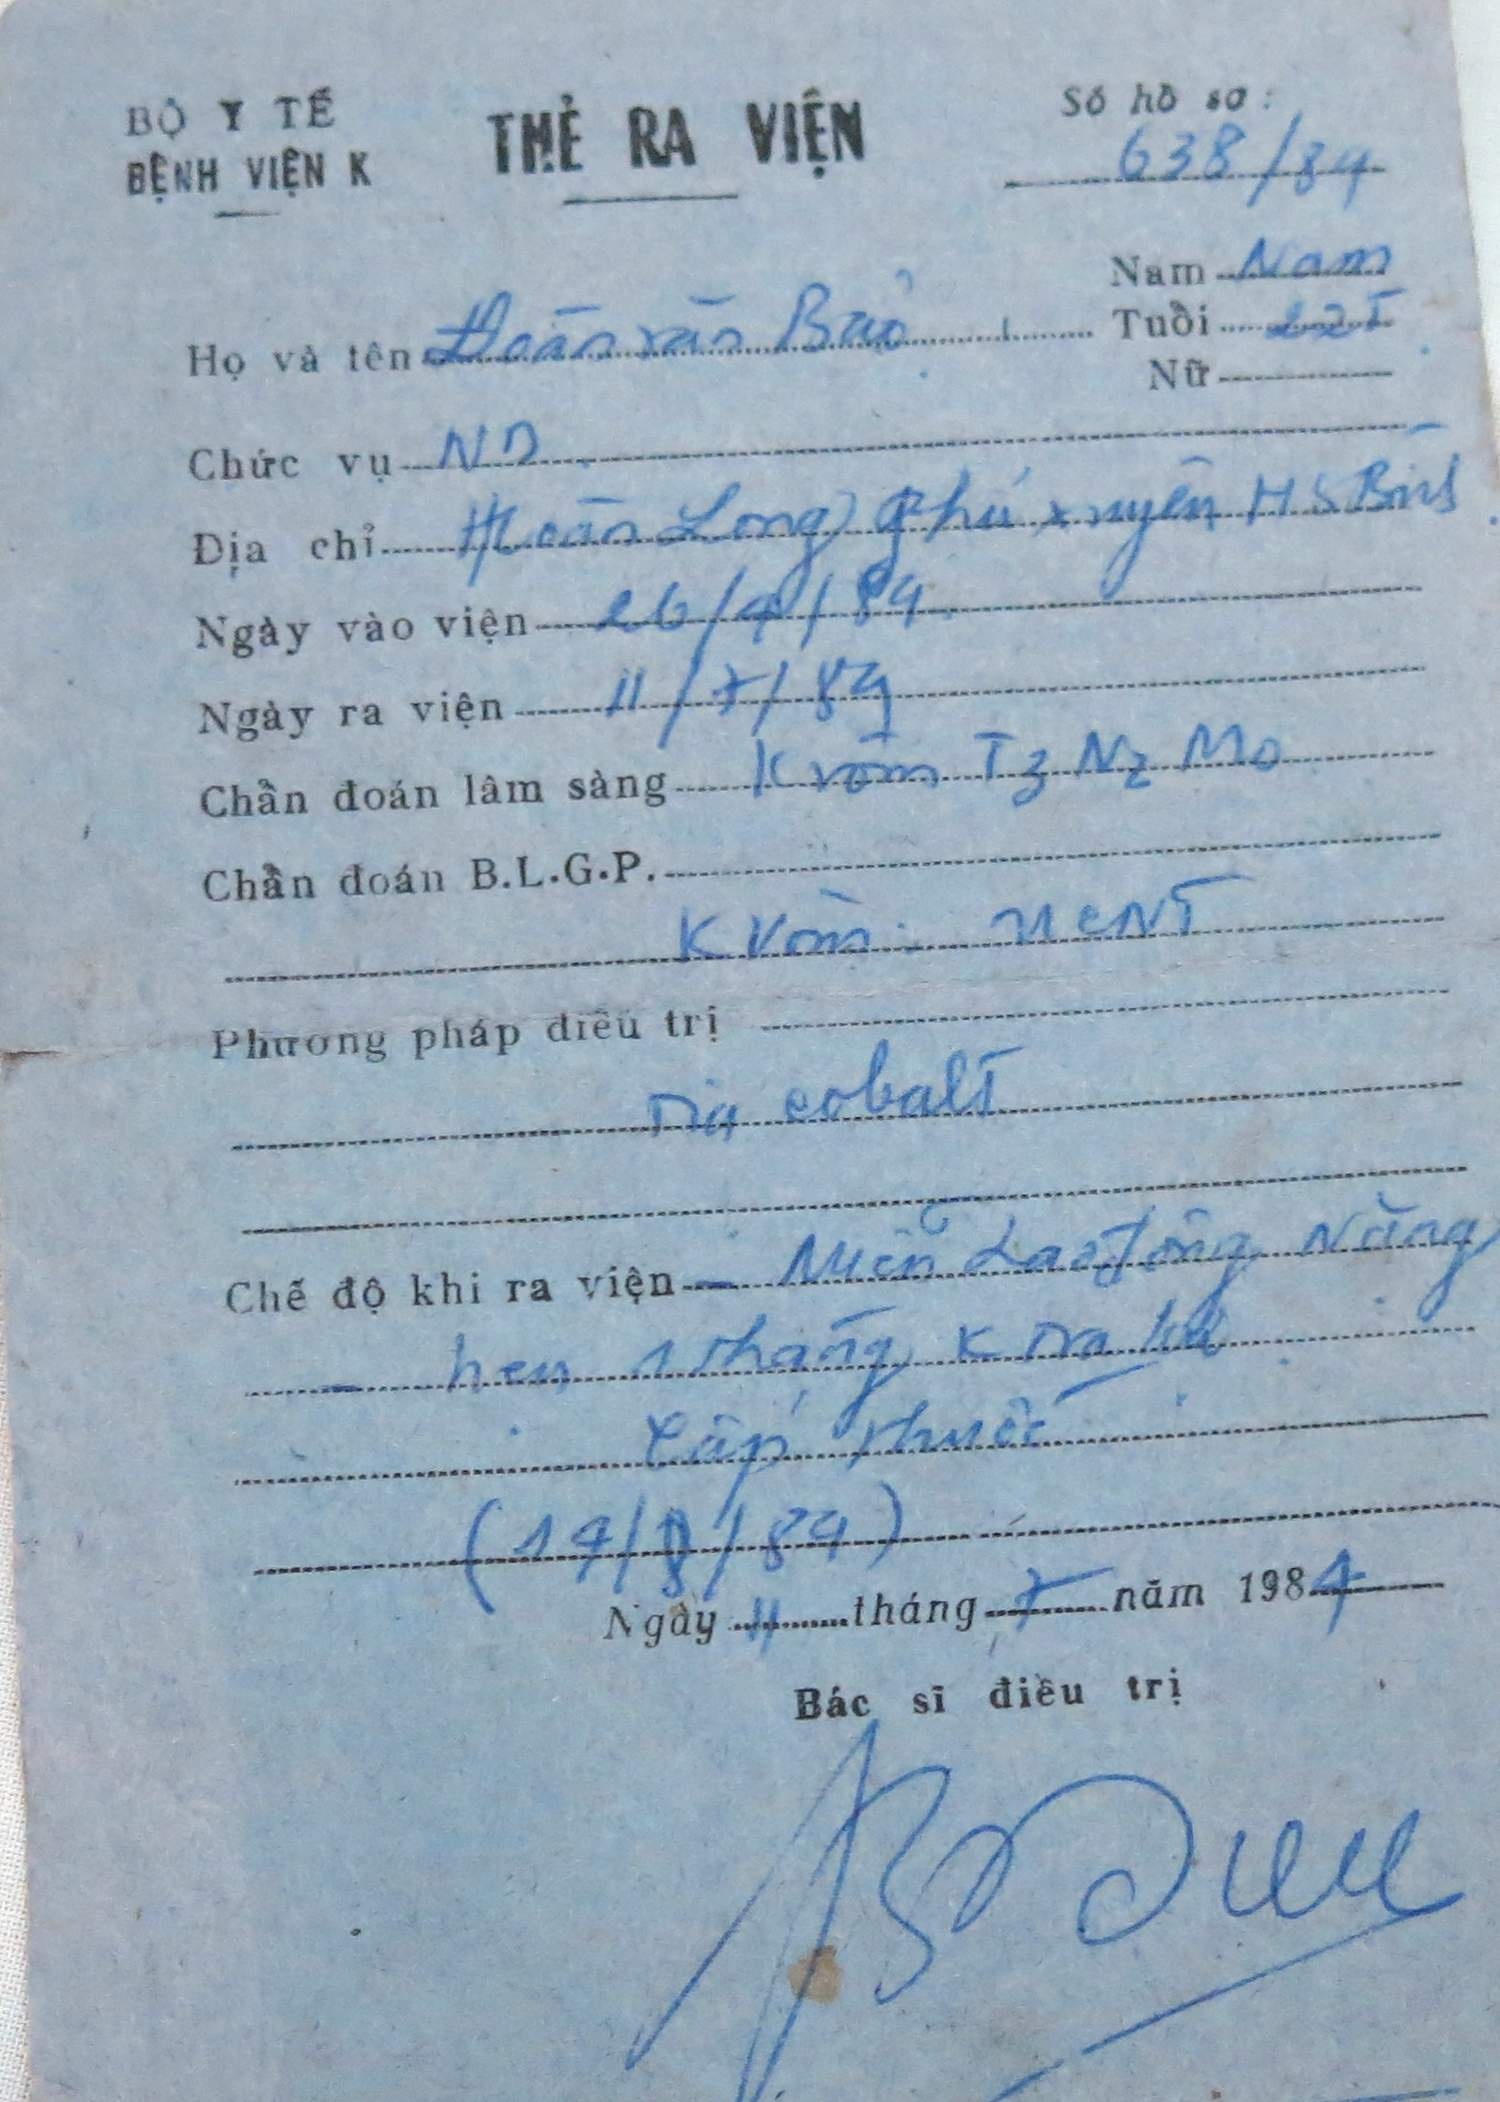 BỘ Y TẾ
BỆNH VIỆN K
THẺ RA VIỆN
Số hồ sơ:
638/84
Nam Nam
Họ và tên Đoàn văn Bảo Tuổi 22T
Nữ
Chức vụ ND
Địa chỉ Hoàng Long Phú xuyên HS Bình
Ngày vào viện 26/4/84
Ngày ra viện 11/7/84
Chẩn đoán lâm sàng K vòm T3 N2 Mo
Chẩn đoán B.L.G.P.
K vòm: UCNT
Phương pháp điều trị
Tia cobalt
Chế độ khi ra viện - Miễn Lao động Nặng
- hẹn 1 tháng K tra lại
Cấp thuốc
(14/8/84)
Ngày 11 tháng 7 năm 1984
Bác sĩ điều trị